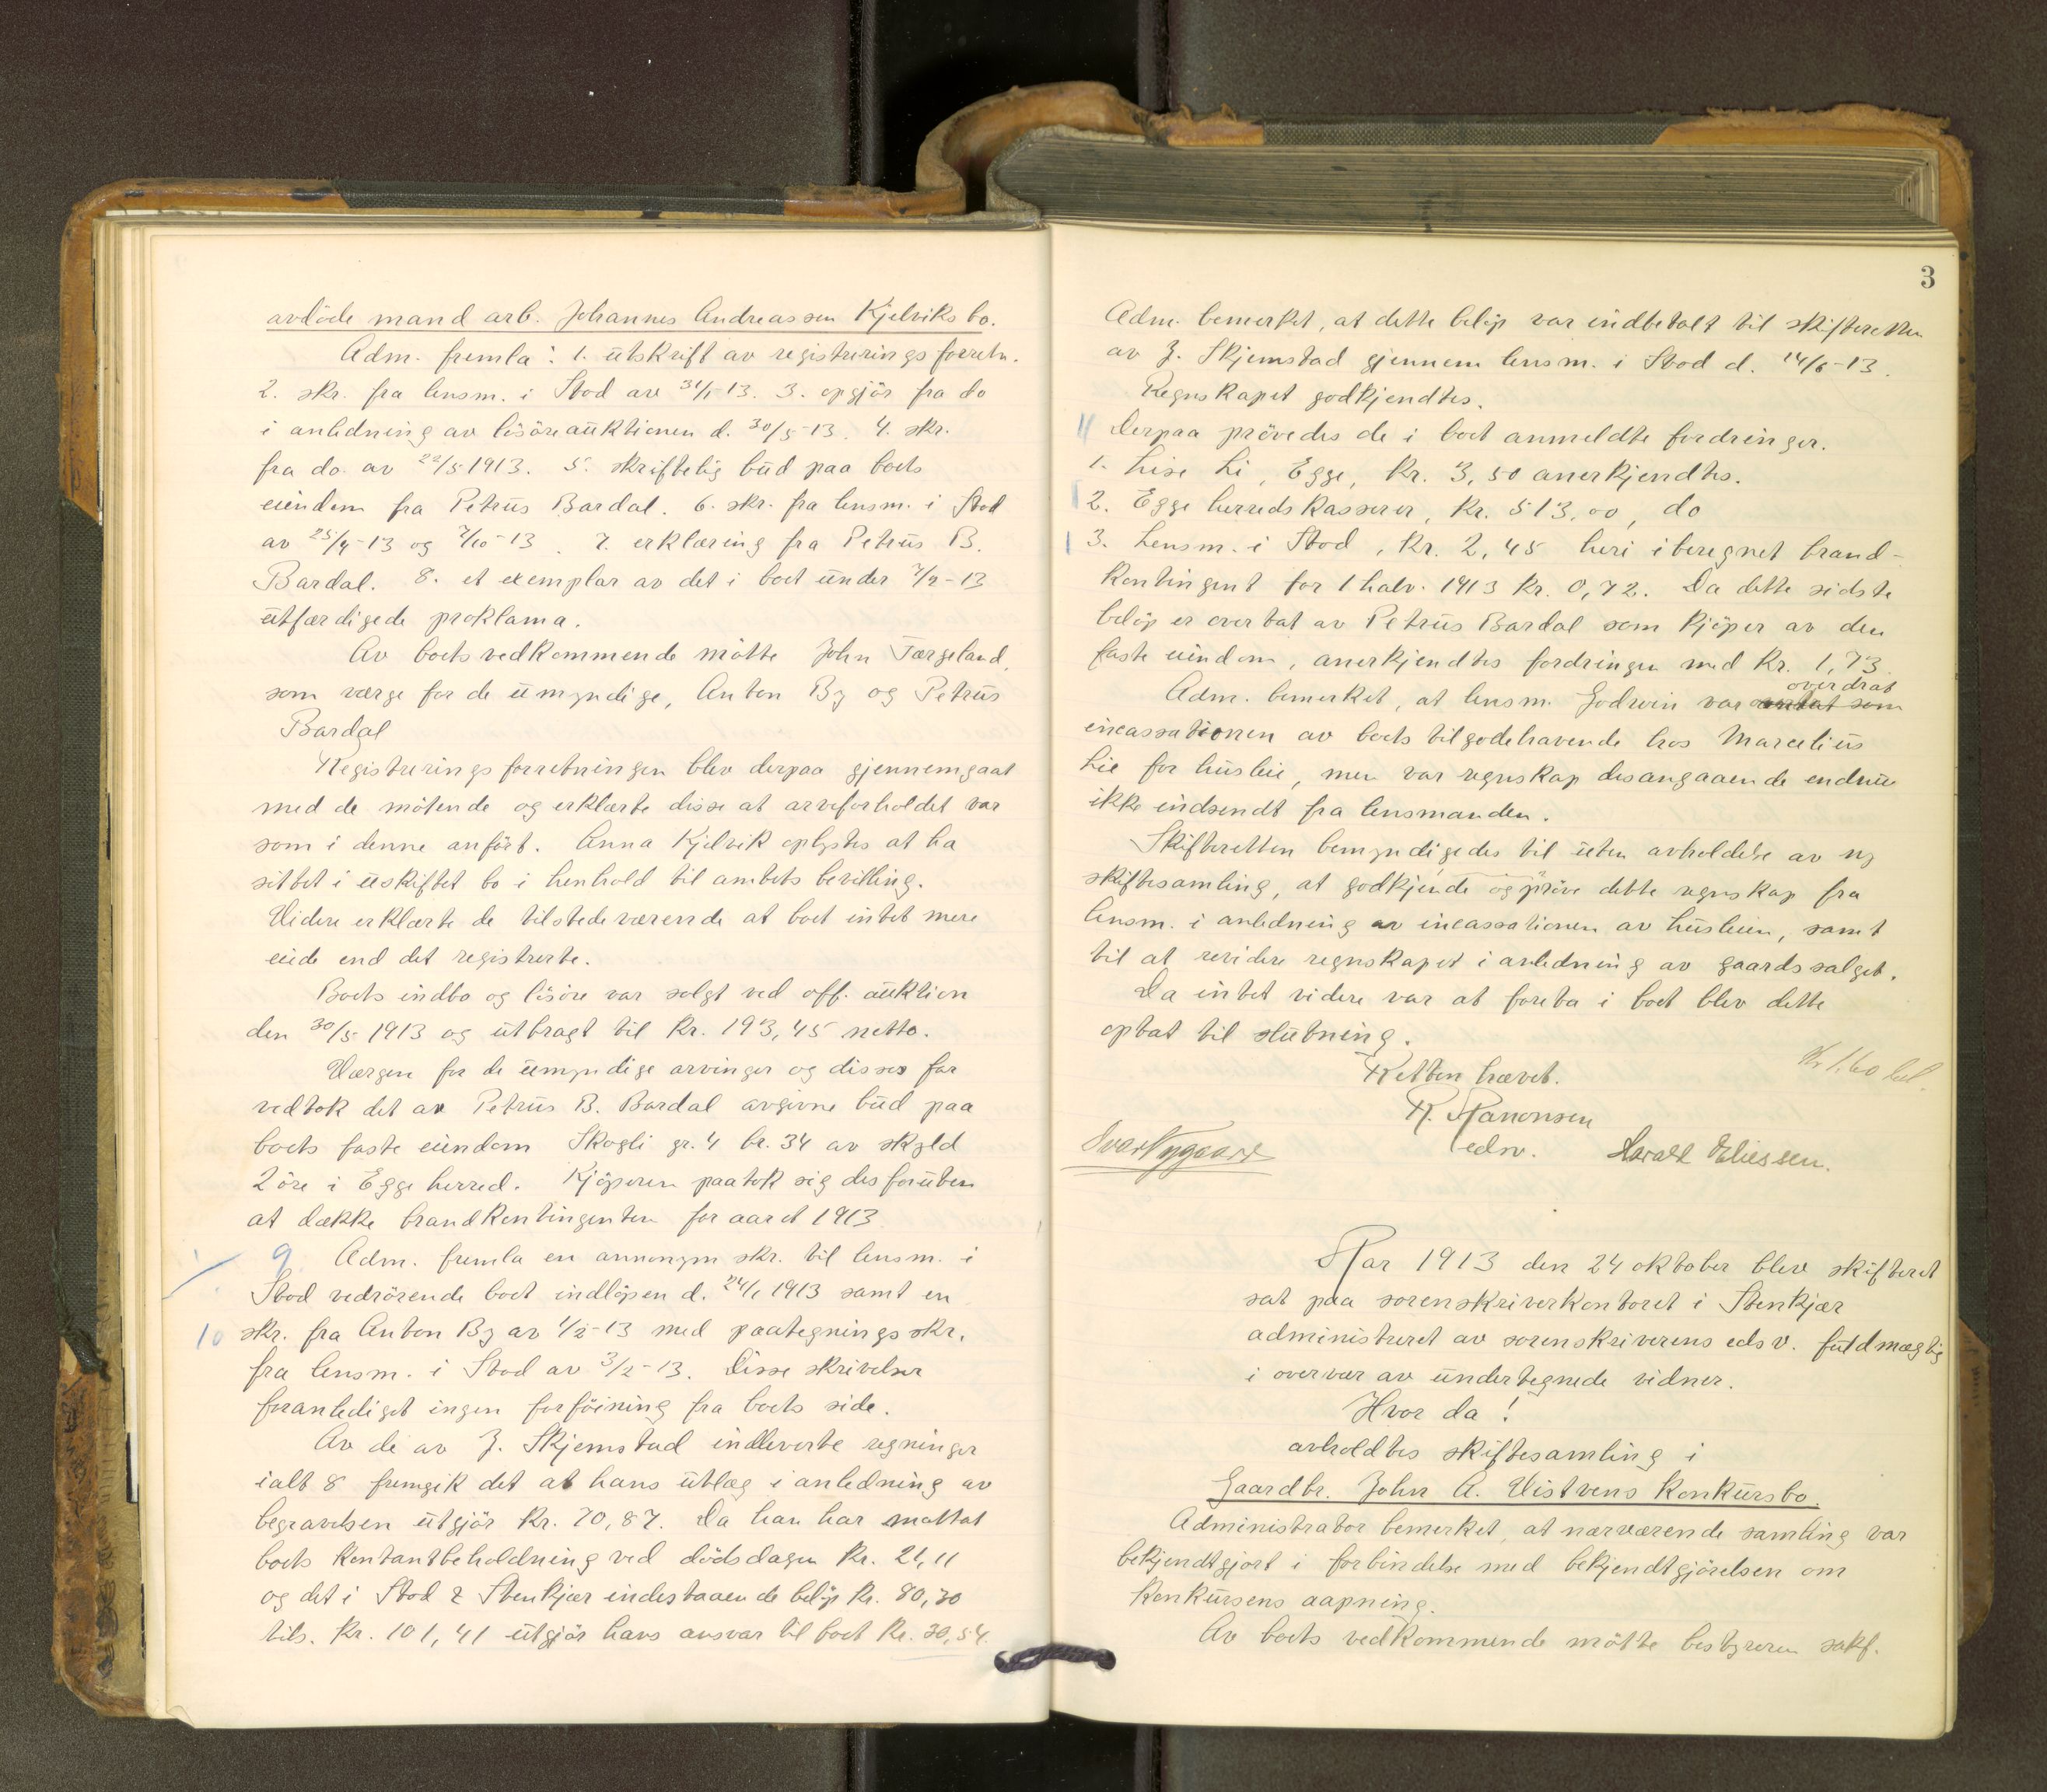 avdöde mand arb. Johannes Andreassen Kjelviks bo.
Adm. fremla: 1. utskrift av registreringsforretn.
2. skr. fra lensm. i Stod av 31/1-13. 3. opgjör fra do
i anledning av lösöreauktionen d. 30/5-13. 4. skr.
fra do. av 22/5 1913. 5. skriftelig bud paa boets
eiendom fra Petrus Bardal. 6. skr. fra lensm. i Stod
av 25/4-13 og 7/10-13. 7. erklæring fra Petrus B.
Bardal. 8. et exemplar av det i boet under 7/2-13
utfærdigede proklama.
Av boets vedkommende mötte John Tørgeland,
som værge for de umyndige, Anton By og Petrus
Bardal
Registreringsforretningen blev derpaa gjennemgaat
med de mötende og erklærte disse at arveforholdet var
som i denne anfört. Anna Kjelvik oplystes at ha
sittet i uskiftet bo i henhold til amtets bevilling.
Videre erklærte de tilstedeværende at boet intet mere
eiede end det registrerte.
Boets indbo og lösöre var solgt ved off. auktion
den 30/5 1913 og utbragt til Kr. 193,45 netto.
Værgen for de umyndige arvinger og disses far
vedtok det av Petrus B. Bardal avgivne bud paa
boets faste eiendom Skogli gr. 4 br. 34 av skyld
2 öre i Egge herred. Kjöperen paatok sig desforuten
at dække brandkontingenten for aaret 1913
9 Adm. fremla en annonym skr. til lensm. i
Stod vedrörende boet indlöpen d. 24/1 1913 samt en
10 skr. fra Anton By av 1/2-13 med paategningsskr.
fra lensm. i Stod av 3/2-13. Disse skrivelser
foranlediget ingen forföining fra boets side.
Av de av J. Skjemstad indleverte regninger
ialt 8 fremgik det at hans utlæg i anledning av
begravelsen utgjör Kr. 70,87. Da han har mottat
boets kontantbeholdning ved dödsdagen Kr. 21,11
og det i Stod & Stenkjær indestaaende belöp Kr. 80,30
tils. Kr. 101,41 utgjör hans ansvar til boet Kr. 30,54.
3
Adm. bemerket, at dette belöp var indbetalt til skifteretten
av J. Skjemstad gjennem lensm. i Stod d. 14/6-13.
Regnskapet godkjendtes.
11 Derpaa prövedes de i boet anmeldte fordringer.
1. Lise Li, Egge, Kr. 3,50 anerkjendtes.
2. Egge herredskasserer, Kr. 513,00, do
3. Lensm. i Stod, Kr. 2,45 heri iberegnet brand-
kontingent for 1 halv. 1913 Kr. 0,72. Da dette sidste
belöp er overtat av Petrus Bardal som kjöper av den
faste eiendom, anerkjendtes fordringen med Kr. 1,73
overdrat
Adm. bemerket, at lensm. Godwin var
incassationen av boets tilgodehavende hos Marcelius
Lie for husleie, men var regnskap desangaaende endnu
ikke indsendt fra lensmanden.
Skifteretten bemyndigedes til uten avholdelse av ny
skiftesamling, at godkjende og pröve dette regnskap fra
lensm. i anledning av incassationen av husleien, samt
til at revidere regnskapet i anledning av gaardssalget.
Da intet videre var at foreta i boet blev dette
optat til slutning.
Retten hævet.
edsv.
Ivar Nygaard Harald Eliessen.
Aar 1913 den 24 oktober blev skifteret
sat paa sorenskriverkontoret i Stenkjær
administreret av sorenskriverens edsv. fuldmægtig
i overvær av undertegnede vidner.
Hvor da!
avholdtes skiftesamling i
Gaardbr. John A. Vistvens konkursbo.
Administrator bemerket, at nærværende samling var
bekjendtgjort i forbindelse med bekjendtgjörelsen om
konkursens aapning.
Av boets vedkommende mötte bestyreren sakf.